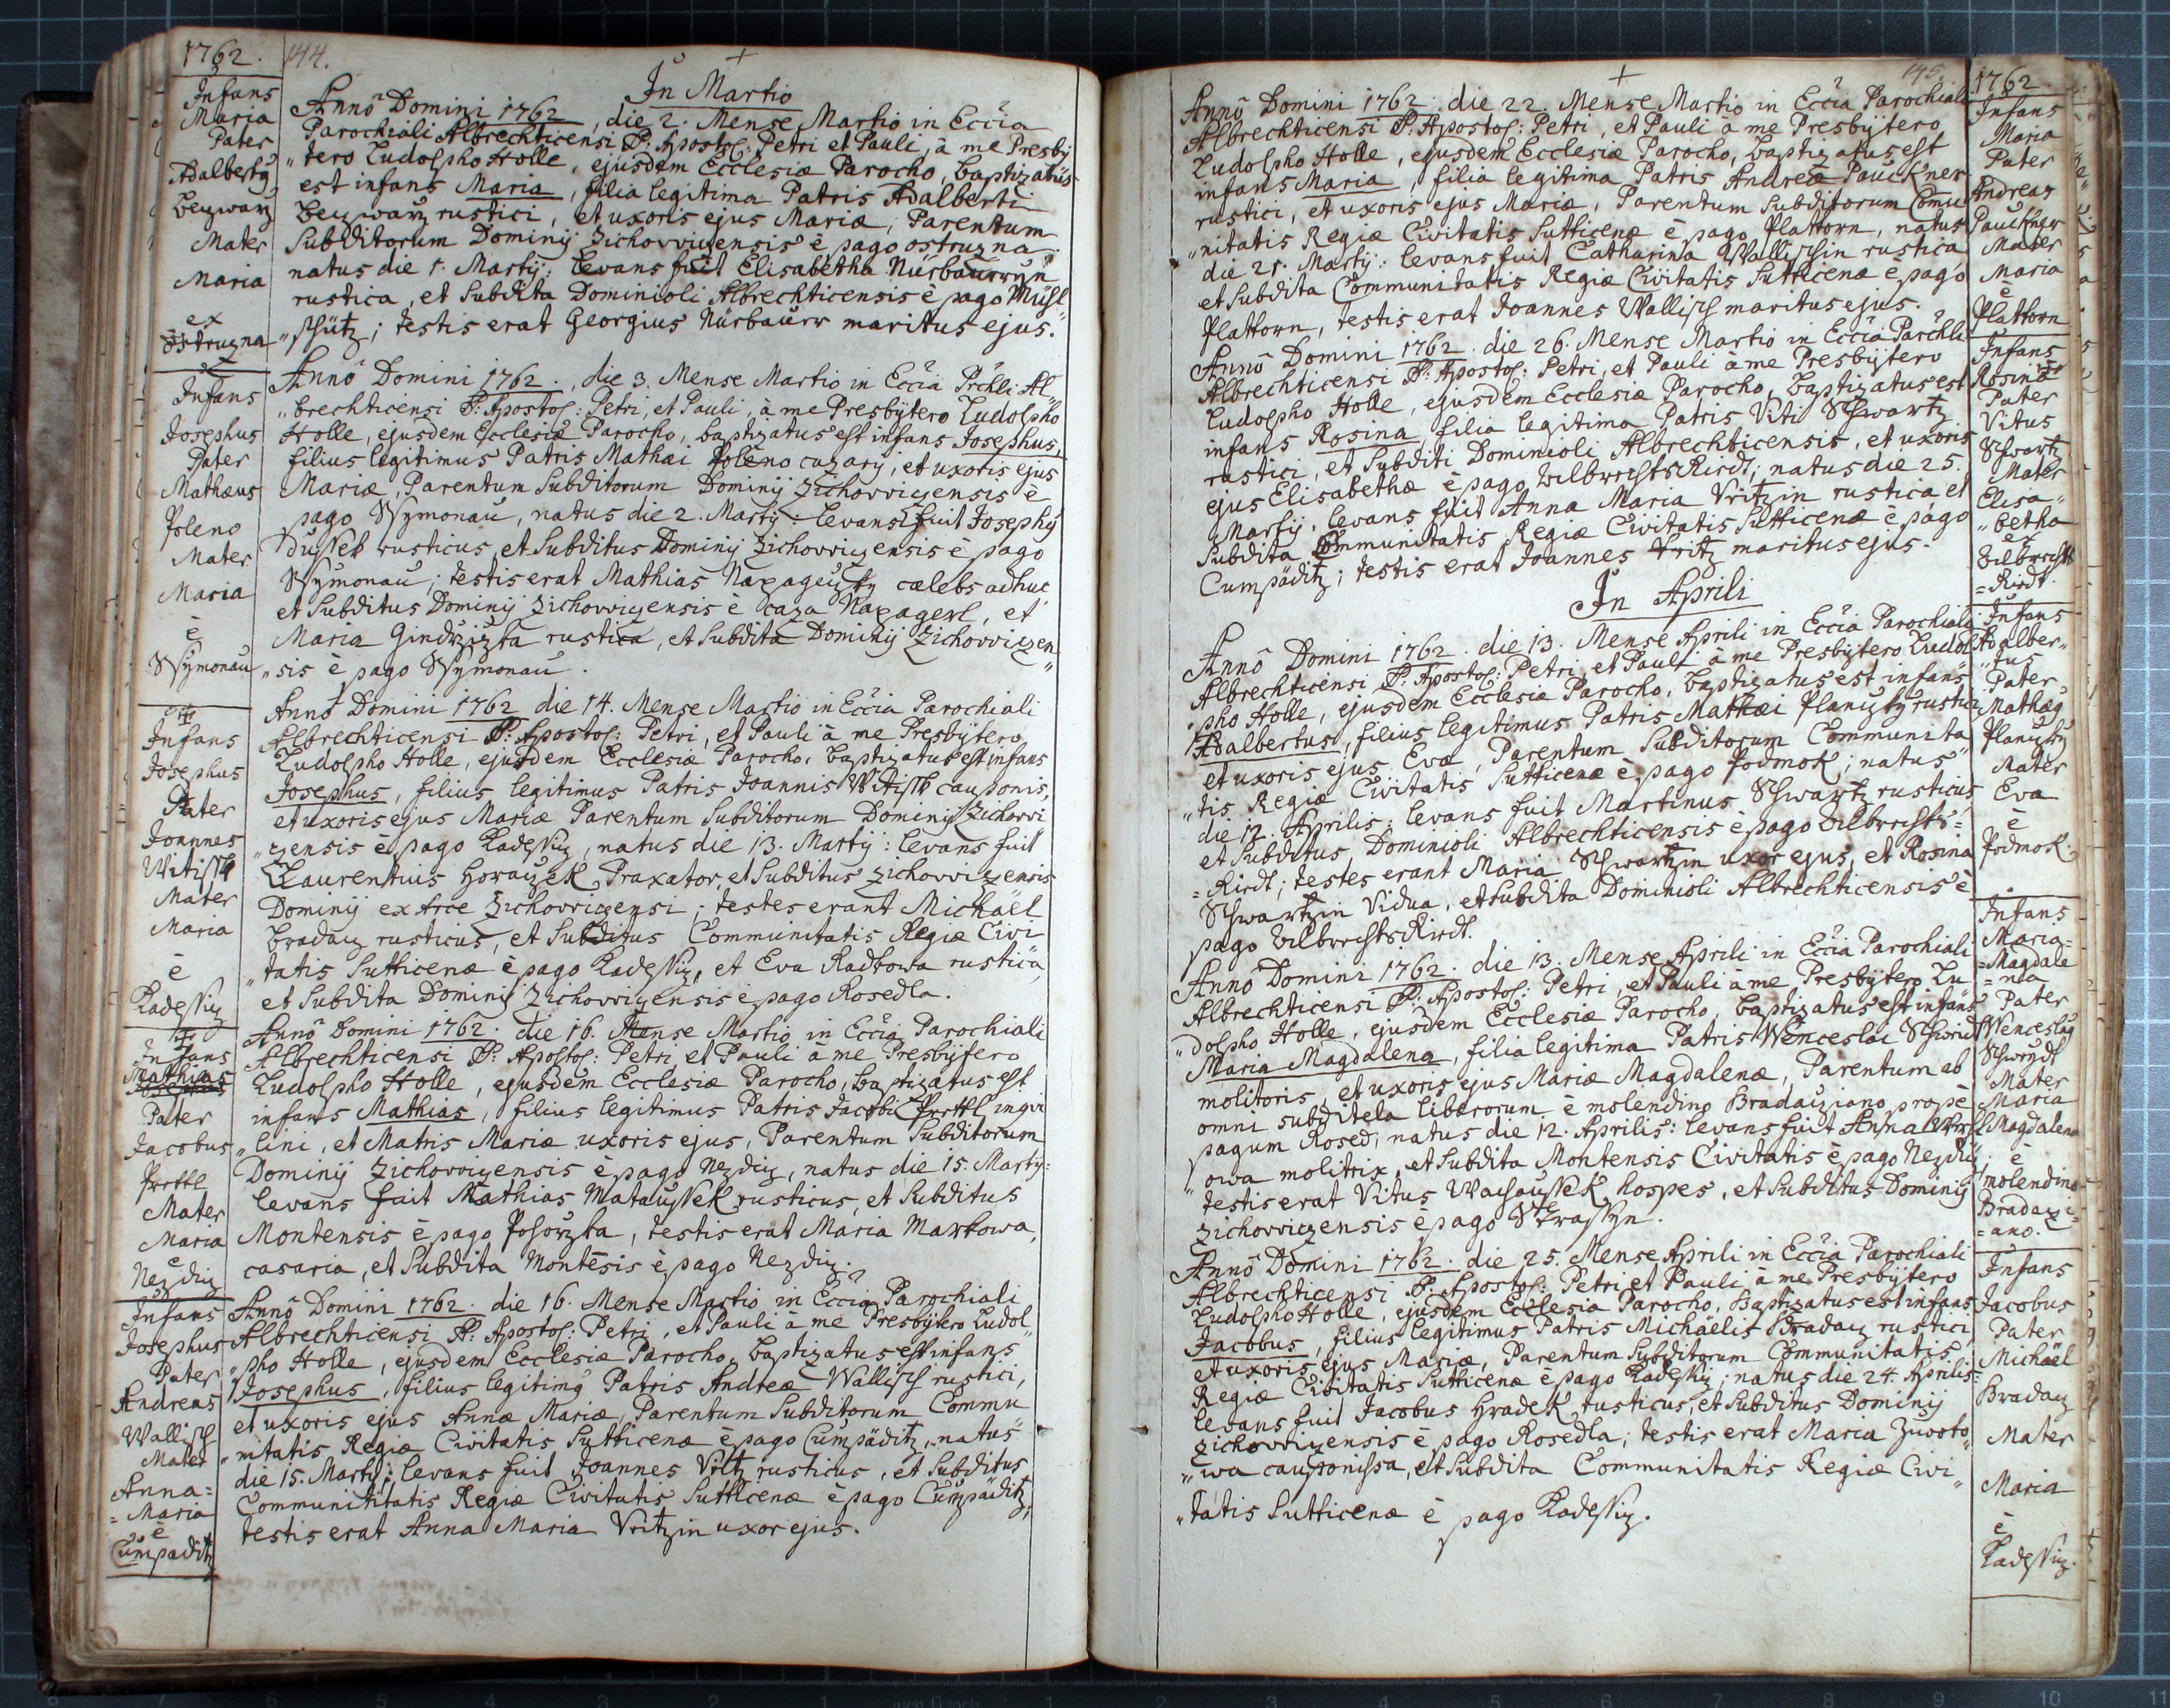 1762.
144.
In Martio
Infans
Maria
Pater
Adalbertg
Mater
Maria
ex
ostruzna
Anno Domini 1762, die 2. Mense Martio in Eccia
Parochiali Albrechticensi S: Apostol: Petri et Pauli, à me Presby
„tero Ludolpho Holle, ejusdem Ecclesiæ Parocho, baptizatus
est infans Maria, filia legitima Patris Adalberti
rustici, et uxoris ejus Mariæ, Parentum
Subditorum Dominij Zichovvicensis è pago ostruzna
natus die 1. Martij: levans fuit Elisabetha
rustica, et Subdita Dominioli Albrechticensis è pago Müsl
„schütz; testis erat Georgius Nürbaurr maritus ejus.
Infans
Josephus
Pater
Mathæus
Poleno
Mater
Maria
è
Ssymonau
Anno Domini 1762., die 3. Mense Martio in Eccia Prchli Al„
„brechticensi S: Apostol: Petri, et Pauli, à me Presbytero Ludolpho
Holle, ejusdem Ecclesiæ Parocho, baptizatus est infans Josephus,
filius legitimus Patris Mathæi Poleno cazarij, et uxoris ejus
Mariæ, Parentum Subditorum Dominij Zichovvicensis è
pago Ssymonau, natus die 2. Martij: levans fuit Josephg
Dussek rusticus, et Subditus Dominij Zichovvicensis è pago
Ssymonau; testis erat Mathias cælebs adhuc
et Subditus Dominij Zichovvicensis è caza et
Maria rustica, et Subdita Dominij Zichovvicen„
„sis è pago Ssymonau.
Infans
Josephus
Pater
Joannes
Witissk
Mater
Maria
è
Kadessiz
Anno Domini 1762 die 14. Mense Martio in Eccia Parochiali
Albrechticensi S: Apostol: Petri, et Pauli à me Presbytero
Ludolpho Holle, ejusdem Ecclesiæ Parocho, baptizatus est infans
Josephus, filius legitimus Patris Joannis Witissk cauponis,
et uxoris ejus Mariæ Parentum Subditorum Dominij Zichovvi
„zensis è pago Kadessiz, natus die 13. Martij: levans fuit
Laurentius Horaczek Praxator, et Subditus Zichovvizensis
Dominij ex Arce Zichovvicensi; testes erant Michaël
Bradacz rusticus, et Subditus Communitatis Regiæ Civi
„tatis Sutticenæ è pago Kadessiz, et Eva Radkowa rustica,
et Subdita Dominij Zichovvicensis è pago Rosedla.
Infans
Mathias
Pater
Jacobus
Prettl
Mater
Maria
è
Nezdiz
Anno Domini 1762. die 16. Mense Martio in Eccia Parochiali
Albrechticensi S: Apostol: Petri, et Pauli à me Presbytero
Ludolpho Holle, ejusdem Ecclesiæ Parocho, baptizatus est
infans Mathias, filius legitimus Patris Jacobi Prettl inqvi
„lini, et Matris Mariæ uxoris ejus, Parentum Subditorum
Dominij Zichovvicensis è pago Nezdiz, natus die 15. Martij:
levans fuit Mathias Mataussek rusticus, et Subditus
Montensis è pago testis erat Maria Markowa,
casaria, et Subdita Montēsis è pago Nezdiz.
Infans
Josephus
Pater
Andreas
Wallisch
Mater
Anna=
=Maria
è
Cumpaditz
Anno Domini 1762. die 16. Mense Martio in Eccia Parochiali
Albrechticensi S: Apostol: Petri, et Pauli à me Presbytero Ludol„
„pho Holle, ejusdem Ecclesiæ Parocho, baptizatus est infans
Josephus, filius legitimg Patris Andreæ Wallisch rustici,
et uxoris ejus Annæ Mariæ, Parentum Subditorum Commu
„nitatis Regiæ Civitatis Sutticenæ è pago Cumpäditz, natus
die 15. Martij: levans fuit Joannes rusticus, et Subditus
Communititatis Regiæ Civitatis Sutticenæ è pago Cumpaditz,
testis erat Anna Maria Vritzin uxor ejus.
145.
1762
Anno Domini 1762. die 22. Mense Martio in Eccia Parochiali
Albrechticensi S: Apostol: Petri, et Pauli à me Presbytero
Ludolpho Holle, ejusdem Ecclesiæ Parocho, baptizatus est
infans Maria, filia legitima Patris Andreæ Pauckner
rustici, et uxoris ejus Mariæ, Parentum Subditorum Comu
„nitatis Regiæ Civitatis Sutticenæ è pago Plattorn, natus
die 21. Martij: levans fuit Catharina Wallischin rustica
et Subdita Communitatis Regiæ Civitatis Sutticenæ è pago
Plattorn, testis erat Joannes Wallisch maritus ejus.
Infans
Maria
Pater
Andreas
Pauckner
Mater
Maria
è
Plattorn
Anno Domini 1762. die 26. Mense Martio in Eccia Parchli
Albrechticensi S: Apostol: Petri, et Pauli à me Presbytero
Ludolpho Holle, ejusdem Ecclesiæ Parocho, baptizatus est
infans Rosina, filia legitima Patris Viti Schwartz
rustici, et Subditi Dominioli Albrechticensis, et uxoris
ejus Elisabethæ è pago natus die 25.
Martij. levans fuit Anna Maria Vritzin rustica et
Subdita Communitatis Regiæ Civitatis Sutticenæ è pago
Cumpäditz; testis erat Joannes Vritz maritus ejus.
Infans
Rosina
Pater
Vitus
Schwartz
Mater
Elisa„
„betha
ex
=Kirdt.
In Aprili
Anno Domini 1762. die 13. Mense Aprili in Eccia Parochiali
Albrechticensi S: Apostol: Petri, et Pauli à me Presbytero Ludol
„pho Holle, ejusdem Ecclesiæ Parocho, baptizatus est infans
Adalbertus, filius legitimus Patris Mathæi Planizky rustici
et uxoris ejus Evæ, Parentum Subditorum Communita
„tis Regiæ Civitatis Sutticenæ è pago Podmok; natus
die 12. Aprilis: levans fuit Martinus Schwartz rusticus
et Subditus Dominioli Albrechticensis è pago
=Kirdt; testes erant Maria Schwartzin uxor ejus, et Rosina
Schwartzin Vidua, et Subdita Dominioli Albrechticensis è
pago
Infans
Adalber„
„tus
Pater
Mathæg
Planizky
Mater
Eva
è
Podmok
Anno Domini 1762. die 13. Mense Aprili in Eccia Parochiali
Albrechticensi S: Apostol: Petri, et Pauli à me Presbytero Lu„
„dolpho Holle, ejusdem Ecclesiæ Parocho, baptizatus est infans
Maria Magdalena, filia legitima Patris Wenceslai
molitoris, et uxoris ejus Mariæ Magdalenæ, Parentum ab
omni subditela liberorum è molendino Bradacziano prope
pagum Rosed, natus die 12. Aprilis: levans fuit Anna
„owa molitrix, et Subdita Montensis Civitatis è pago Nezdiz
testis erat Vitus hospes, et Subditus Dominij
Zichovviczensis è pago
Infans
Maria=
=Magdale
=na
Pater
Wenceslag
Mater
Maria
Magdalena
è
molendino
Bradaczi=
=ano.
Anno Domini 1762. die 25. Mense Aprili in Eccia Parochiali
Albrechticensi S: Apostol: Petri, et Pauli à me Presbytero
Ludolpho Holle, ejusdem Ecclesia Parocho, Baptizatus est infans
Jacobus, filius legitimus Patris Michäelis Bradacz rustici,
et uxoris ejus Mariæ, Parentum Subditorum Communitatis
Regiæ Civitatis Sutticenæ è pago Kadessiz; natus die 24. Aprilis:
levans fuit Jacobus Hradek rusticus, et Subditus Dominij
Zichovviczensis è pago Rosedla; testis erat Maria
„wa cauponissa, et Subdita Communitatis Regiæ Civi„
„tatis Sutticenæ è pago Kadessiz.
Infans
Jacobus
Pater
Michäel
Bradacz
Mater
Maria
è
Kadessiz.